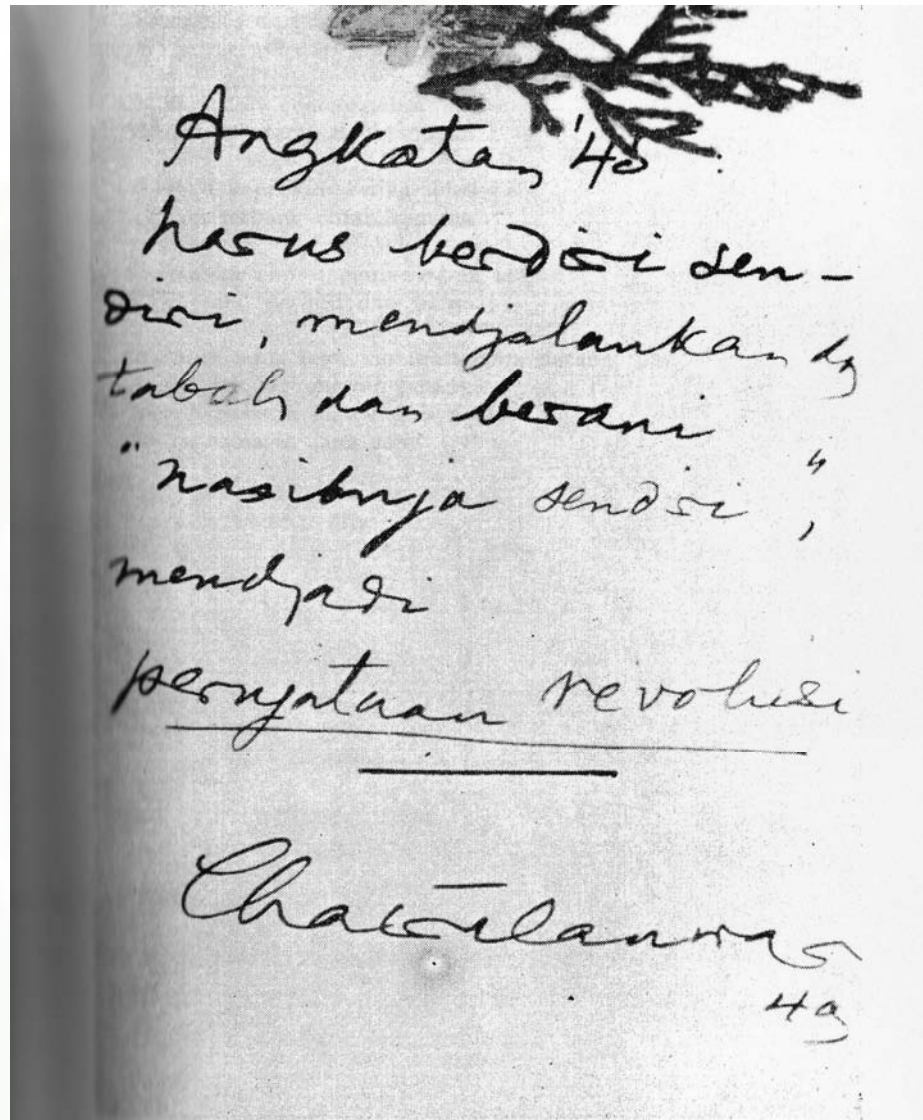 Angkatan '45
harus berdiri sen-
diri, mendjalankan dg
tabah dan berani
"nasibnja sendiri",
mendjadi
pernjataan revolusi
Chairilanwar
49